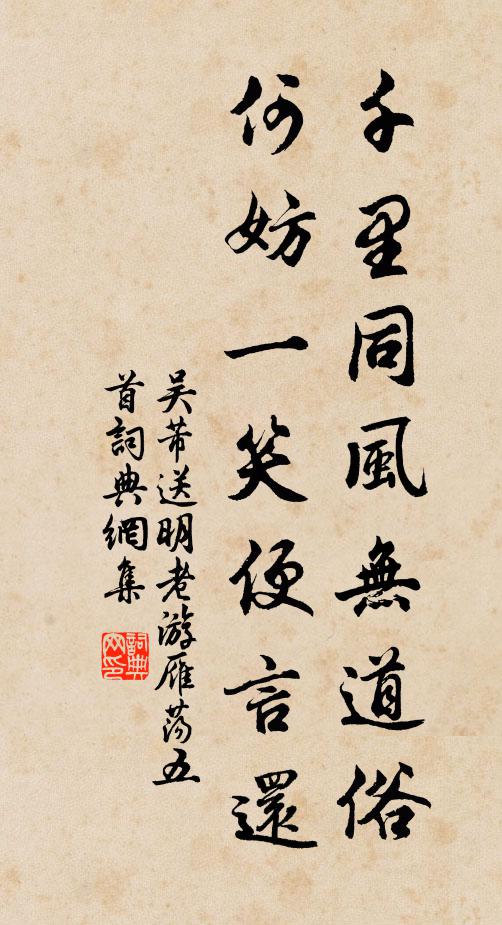 千里同風無道俗
何妨一笑便言還
吳芾送明老游雁蕩五
首詞典網集
詞典網印